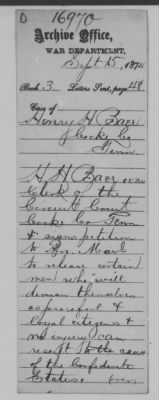 D 16970
Archive Office,
WAR DEPARTMENT,
Sept 15, 1874
Book 3 Letters Sent, page 418
Case of
Henry H. Baer
Cocke Co
Tenn.
H H Baer was
Clerk of the
Circuit Court
Cocke Co Tenn
& signs petition
to
to release certain
men who will
demean themselves
as peaceful &
loyal citizens &
no injury can
result to the cause
of the Confederate
States.